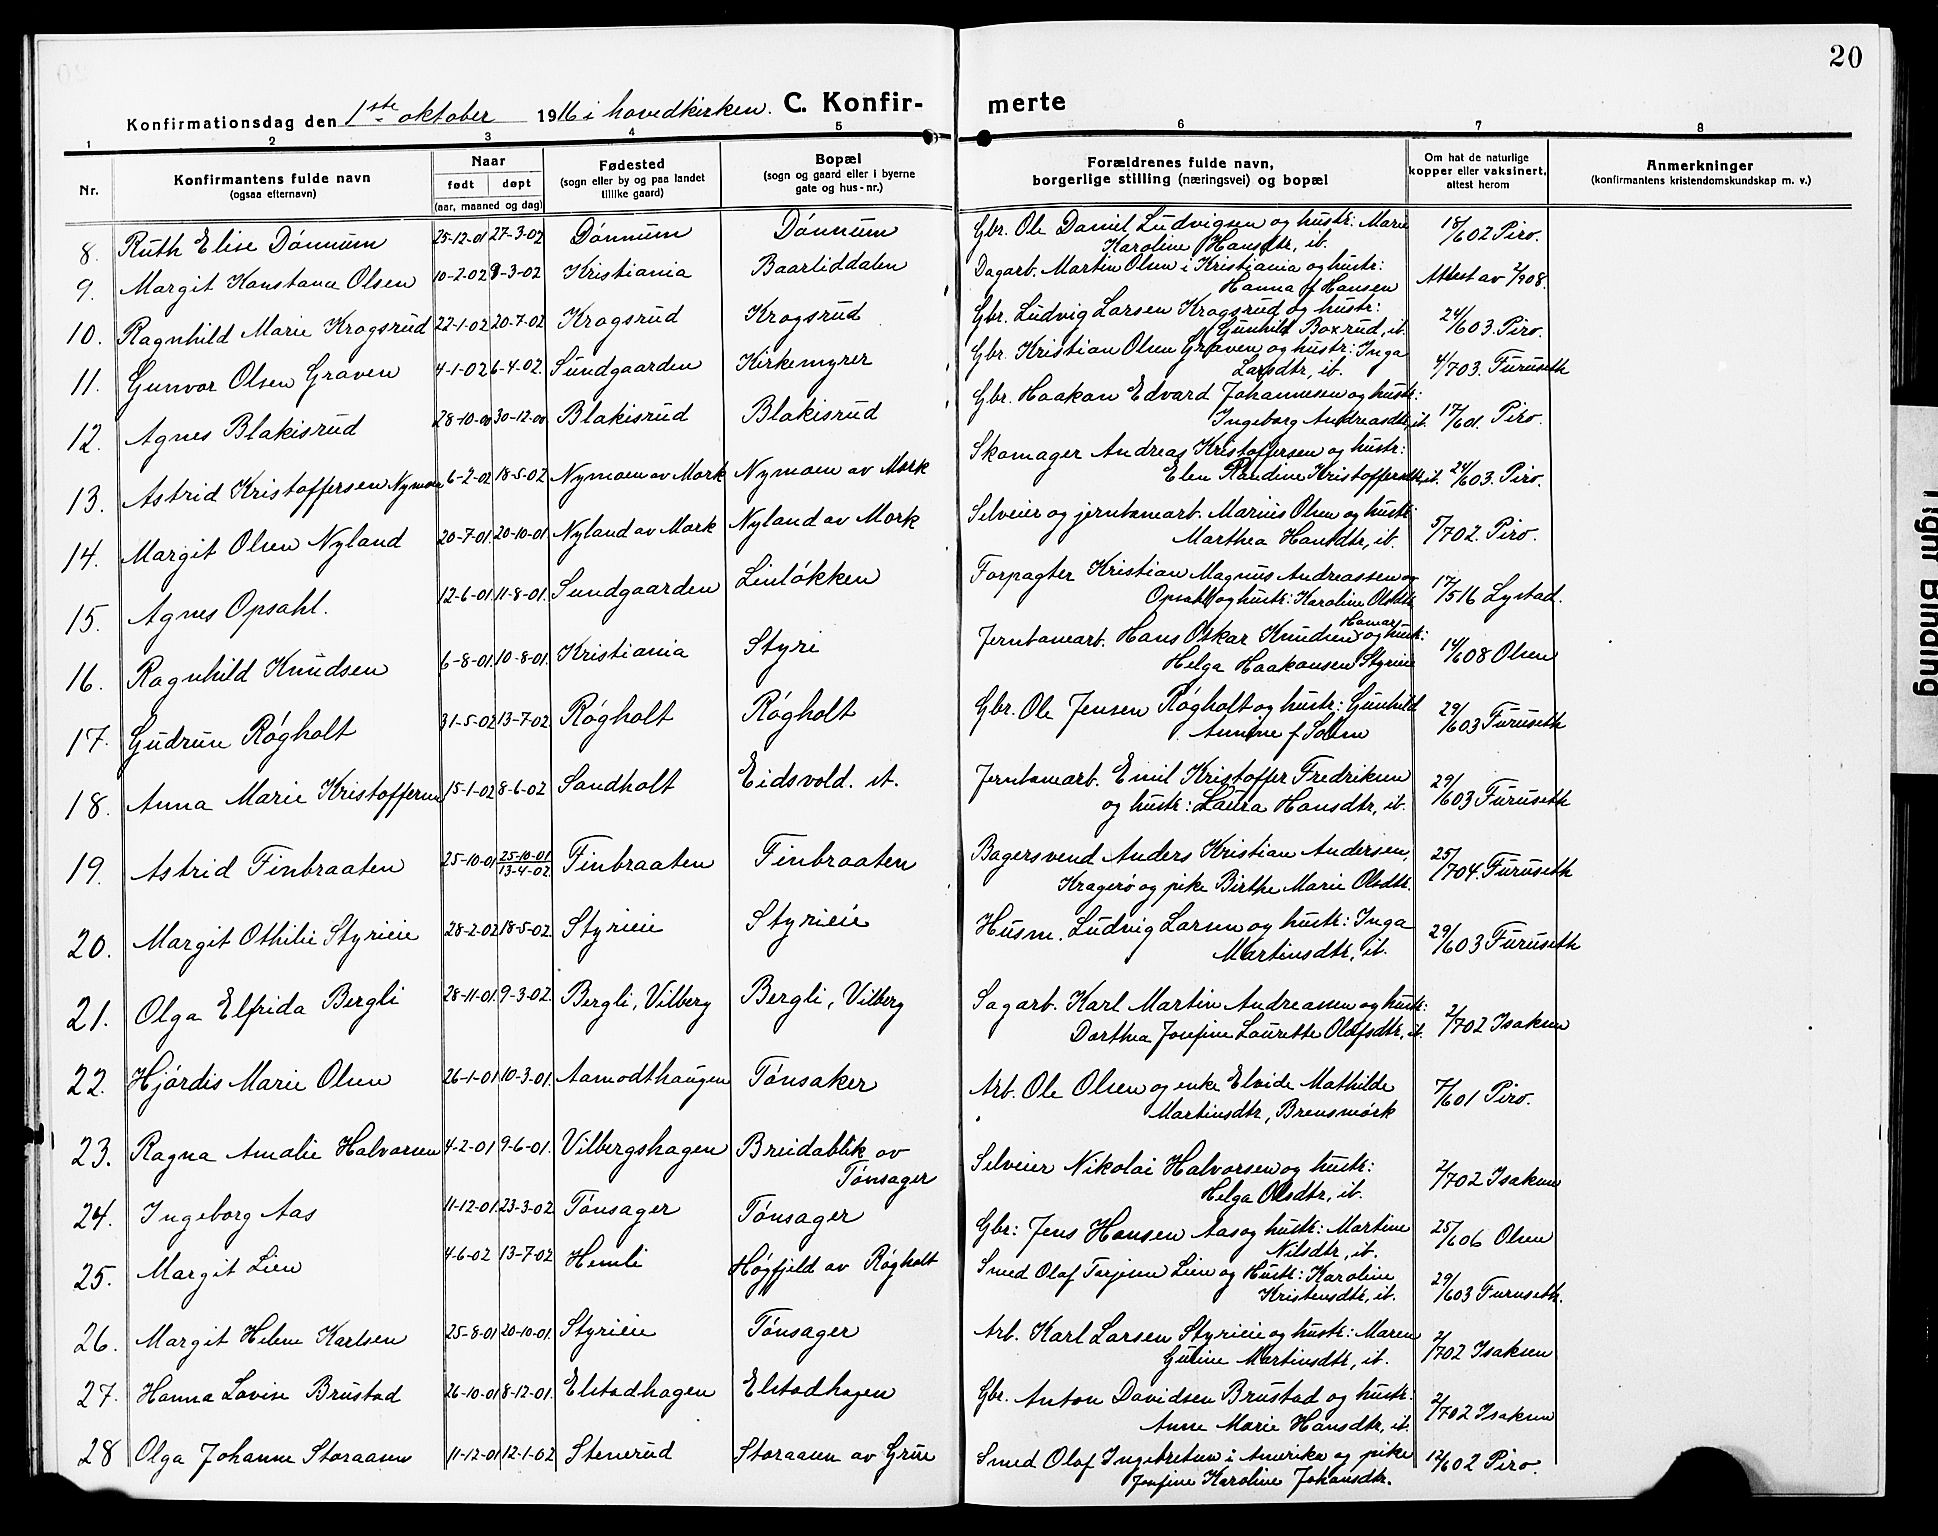 20
Konfirmationsdag den 1ste oktober 1916 i hovedkirken. C. Konfir- merte
1 2 3 4 5 6 7 8
Nr.
Konfirmantens fulde navn
(ogsaa efternavn)
Naar
født døpt
(aar, maaned og dag)
Fødested
(sogn eller by og paa landet
tillike gaard)
Bopæl
(sogn og gaard eller i byerne
gate og hus-nr.)
Forældrenes fulde navn,
borgerlige stilling (næringsvei) og bopæl
Om hat de naturlige
kopper eller vaksinert,
attest herom
Anmerkninger
(konfirmantens kristendomskundskap m. v.)
8. Ruth Elise Dónnum 25-12-01 27-3-02 Dónnum Dónnum Gbr. Ole Daniel Ludvigsen og hustr: Marie 18/602 Piro.
Karoline Hansdtr, ib.
9. Margit Konstance Olsen 10-2-02 9-3-02 Kristiania Baarliddalen Dagarb. Martin Olsen i Kristiania og hustr: Attest av 2/908.
Hanna f Hansen
10. Ragnhild Marie Krogsrud 22-1-02 20-7-02 Krogsrud Krogsrud Gbr. Ludvig Larsen Krogsrud og hustr: 24/603. Piro.
Gunhild Boxrud, ib.
11. Gunvor Olsen Graven 4-1-02 6-4-02. Sundgaarden Kirkemyrer Gbr. Kristian Olsen Graven og hustr: Inga 4/703. Furuseth
Larsdtr, ib.
12. Agnes Blakisrud 28-10-00 30-12-00 Blakisrud Blakisrud Gbr. Haakon Edvard Johannesen og hustr:
Ingeborg Andreasdtr, ib. 17/601. Piro.
13. Astrid Kristoffersen Nymoen 6-2-02 18-5-02 Nymoen av Mork Nymoen av Mork Skomager Andreas Kristoffersen og hustr:
Elen Randine Kristoffersdtr, ib. 24/603. Piro.
14. Margit Olsen Nyland 20-7-01. 20-10-01 Nyland av Mork Nyland av Mork Selveier og jernbanearb. Marius Olsen og hustr:
Marthea Hansdtr, ib. 5/702. Piro.
15. Agnes Opsahl. 12-6-01. 11-8-01. Sundgaarden Linlókken Forpagter Kristian Magnus Andreassen
Opsahl og hustr: Karoline Olsdtr 17/516 Lystad.
16. Ragnhild Knudsen 6-8-01. 10-8-01. Kristiania Styri Jernbanearb. Hans Oskar Knudsen Hamar og hustr:
Helga Haakonsen Styrieie 14/608 Olsen
17. Gudrun Rógholt 31-5-02 13-7-02. Rógholt Rógholt Gbr. Ole Jensen Rógholt og hustr: Gunhild 29/603 Furuseth
Annine f
18. Anna Marie Kristoffersen 15-1-02 8-6-02 Sandholt Eidsvold. st. Jernbanearb. Emil Kristoffer Fredriksen 29/603 Furuseth
og hustr: Laura Hansdtr, ib.
19. Astrid Finbraaten 25-10-01 25-10-01/13-4-02. Finbraaten Finbraaten Bagersvend Anders Kristian Andersen, 25/704. Furuseth
Kragerø og pike Birthe Marie Olsdtr.
20. Margit Othilie Styrieie 28-2-02 18-5-02. Styrieie Styrieie Husm. Ludvig Larsen og hustr: Inga 29/603 Furuseth
Martinsdtr, ib.
21. Olga Elfrida Bergli 28-11-01. 9-3-02. Bergli, Vilberg Bergli, Vilberg Sagarb. Karl Martin Andreasen og hustr:
Dorthea Josefine Laurette Olafsdtr, ib. 2/702 Isaksen
22. Hjórdis Marie Olsen 26-1-01 10-3-01. Aamodthaugen Tónsaker Arb. Ole Olsen og enke Elvide Mathilde 7/601 Piro.
Martinsdtr, Brensmórk
23. Ragna Amalie Halvorsen 4-2-01 9-6-01. Vilbergshagen Breidablik av Selveier Nikolai Halvorsen og hustr: 2/702 Isaksen
Tónsager Helga Olsdtr, ib.
24. Ingeborg Aas 11-12-01. 23-3-02 Tónsager Tónsager Gbr: Jens Hansen Aas og hustr: Martine 25/606 Olsen
Nilsdtr, ib.
25. Margit Lien 4-6-02 13-7-02 Hemli Høgfjeld av Rógholt Smed Olaf Torjesen Lien og Hustr: Karoline 29/603 Furuseth.
Kristensdtr, ib.
26. Margit Helene Karlsen 25-8-01 20-10-01. Styrieie Tónsager Arb. Karl Larsen Styrieie og hustr: Maren 2/702 Isaksen
Guline Martinsdtr, ib.
27. Hanna Lovise Brustad 26-10-01 8-12-01. Elstadhagen Elstadhagen Gbr. Anton Davidsen Brustad og hustr: 2/702 Isaksen
Anne Marie Hansdtr, ib.
28 Olga Johanne Storaasen 11-12-01 12-1-02 Stenerud Storaasen av Grue Smed Olof Ingebretsen i Amerika og pike 12/602 Piro.
Josefine Karoline Johansdtr.
Tight Binding